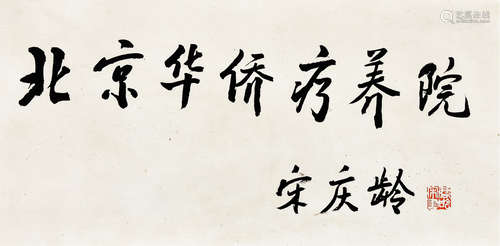 北京华侨疗养院
宋庆龄